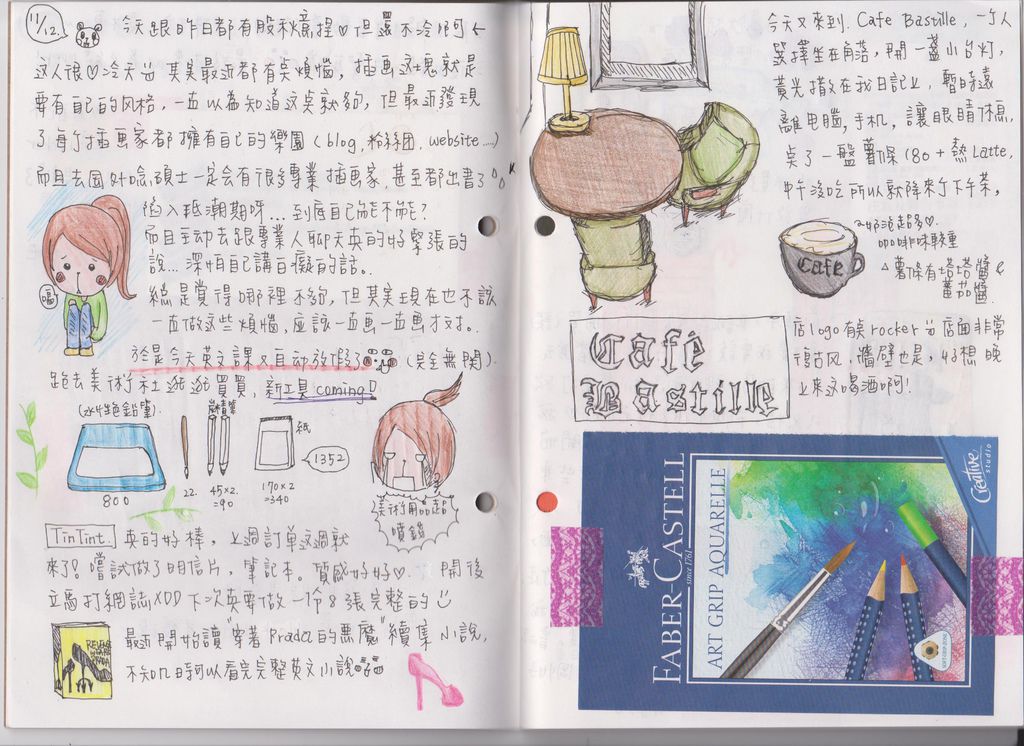 11/12. 今天跟昨日都有股秋意捏♡但還不冷啊
這人很♡冷天 其實最近都有點煩惱, 插画這塊就是
要有自己的风格, 一直以為知道这點就夠, 但最近發現
了每个插画家都擁有自己的樂園 (blog, 粉絲团, website....)
而且去囯外唸碩士一定会有很多專業插画家, 甚至都出書了
陷入低潮期呀... 到底自己能不能?
而且主动去跟專業人聊天真的好緊張的
說... 深怕自己講白癡的話。
嗚
總是覺得哪裡不夠, 但其实現在也不該
一直做这些煩惱, 应該一直画一直画才对。
於是今天英文課又自动放假了 (完全無関).
跑去美術社逛逛買買, 新工具 coming!!
(水性色鉛筆).
800
22.
45x2.
=90
紙
170x2
=340
1352
美術用品起
噴錢
TinTint. 真的好棒, 上週訂单这週就
來了! 嚐試做了明信片, 筆記本。質感好好♡. 開後
立馬打網誌XDD 下次真要做一份8張完整的
最近開始讀"穿著Prada的惡魔"續集小說,
不知几時可以看完完整英文小說
今天又來到. Cafe Bastille, 一个人
選擇坐在角落, 開一盞小台灯,
黃光撒在我日記上, 暫時遠
離电腦, 手机, 讓眼睛休息,
點了一盤薯條 180 + 熱 Latte,
中午沒吃所以就降來了下午茶,
奶泡超多♡.
咖啡味較重
Cafe
△薯條有塔塔醬&
蕃茄醬.
Café
Bastille
店logo有點rocker 店面非常
復古风, 牆壁也是, 好想晚
上來这喝酒啊!
FABER-CASTELL
since 1761
ART GRIP AQUARELLE
Creative
studio